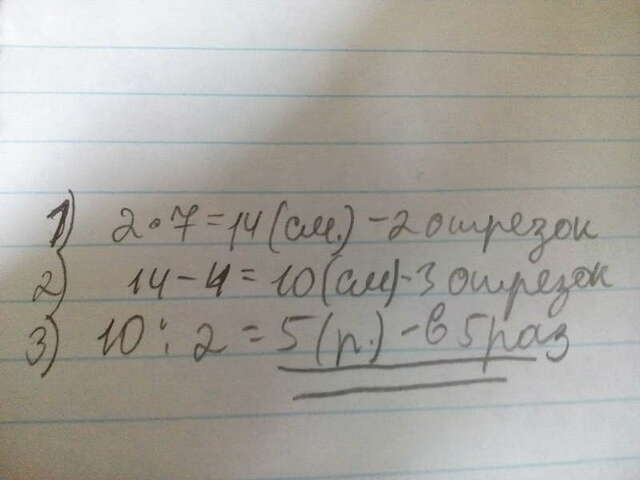 1) 2•7=14(см.)-2 отрезок
2) 14-4=10(см)-3 отрезок
3) 10:2=5(р.)-в 5 раз